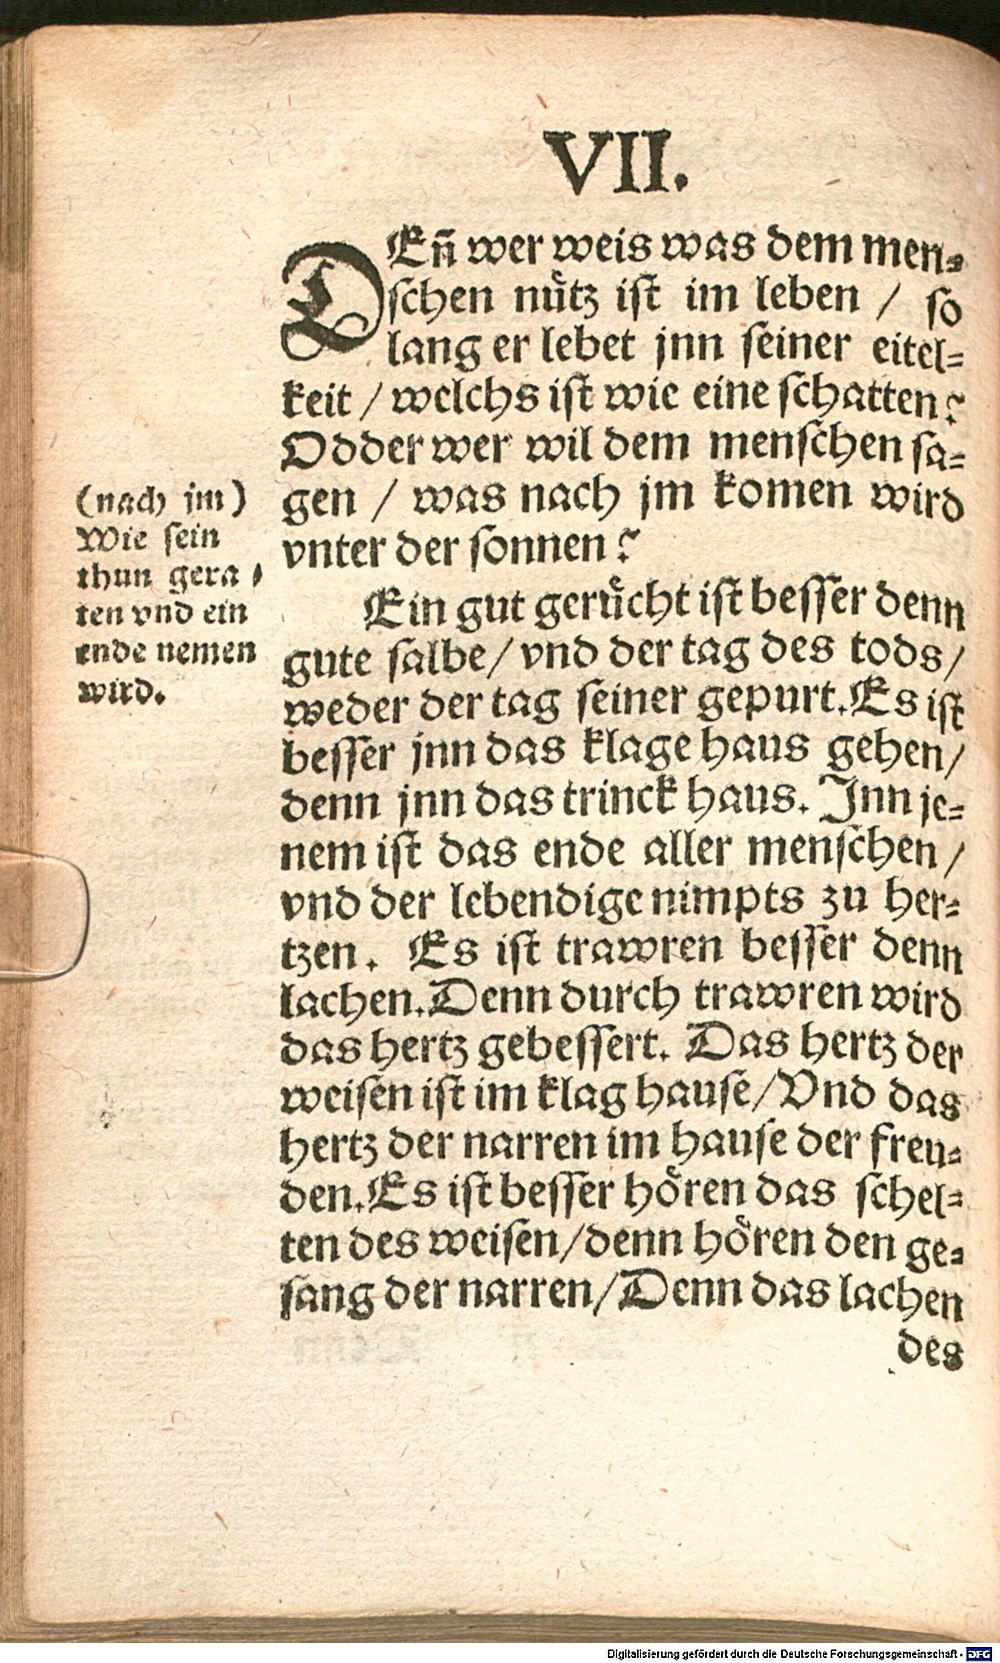 VII.
DEñ wer weis was dem men⸗
schen nütz ist im leben / so
lang er lebet jnn seiner eitel⸗
keit / welchs ist wie eine schatten?
Odder wer wil dem menschen sa⸗
gen / was nach jm komen wird
vnter der sonnen?
(nach jm)
Wie sein
thun gera⸗
ten vnd ein
ende nemen
wird.
Ein gut gerücht ist besser denn
gute salbe/ vnd der tag des tods/
weder der tag seiner gepurt. Es ist
besser jnn das klage haus gehen/
denn jnn das trinck haus. Jnn je⸗
nem ist das ende aller menschen/
vnd der lebendige nimpts zu her⸗
tzen. Es ist trawren besser denn
lachen. Denn durch trawren wird
das hertz gebessert. Das hertz der
weisen ist im klag hause/ Vnd das
hertz der narren im hause der freu⸗
den. Es ist besser hören das schel⸗
ten des weisen/ denn hören den ge⸗
sang der narren/ Denn das lachen
des
Digitalisierung gefördert durch die Deutsche Forschungsgemeinschaft - DFG